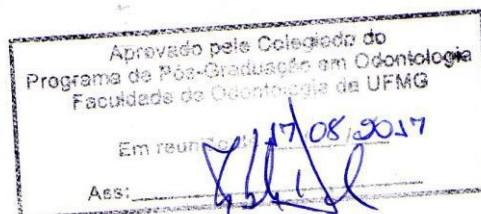 Aprovado pelo Colegiado do
Programa de Pós-Graduação em Odontologia
Faculdade de Odontologia da UFMG
Em reunião de 17/08/2017
Ass: